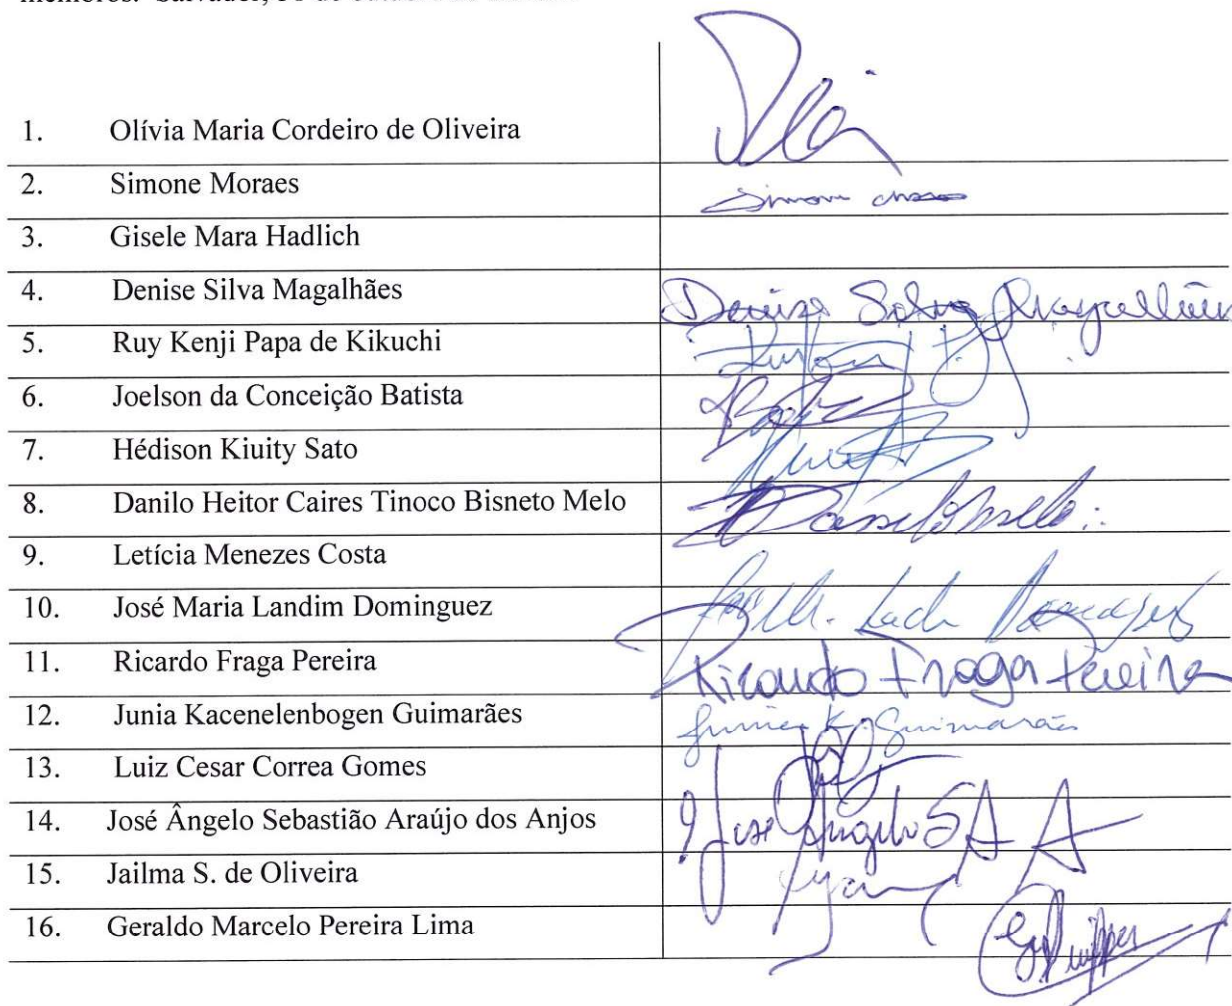 Salvador,
1. Olívia Maria Cordeiro de Oliveira
2. Simone Moraes
3. Gisele Mara Hadlich
4. Denise Silva Magalhães Denise Silva Magalhães
5. Ruy Kenji Papa de Kikuchi
6. Joelson da Conceição Batista
7. Hédison Kiuity Sato
8. Danilo Heitor Caires Tinoco Bisneto Melo Danilo Melo
9. Letícia Menezes Costa
10. José Maria Landim Dominguez
11. Ricardo Fraga Pereira Ricardo Fraga Pereira
12. Junia Kacenelenbogen Guimarães Junia K. Guimarães
13. Luiz Cesar Correa Gomes
14. José Ângelo Sebastião Araújo dos Anjos José Ângelo SAA
15. Jailma S. de Oliveira
16. Geraldo Marcelo Pereira Lima